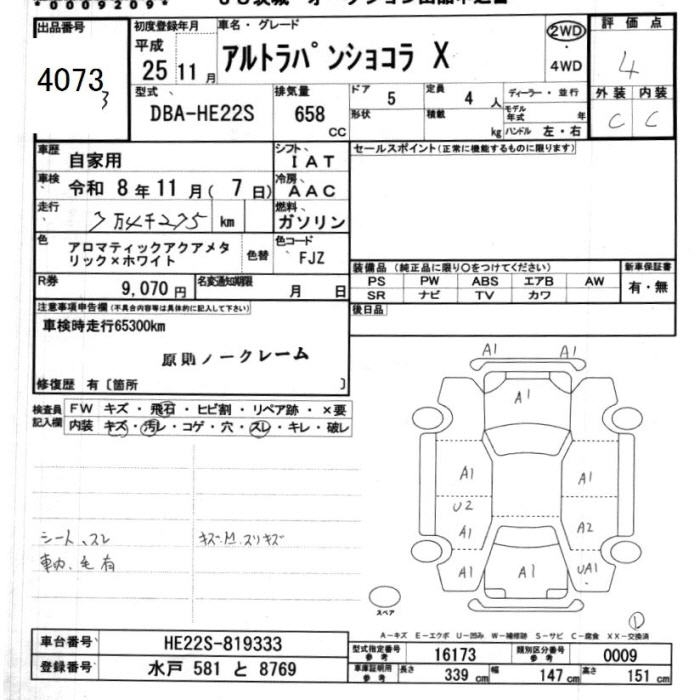 *0009209*
出品番号
4073
3
初度登録年月
平成
25 11 月
車名・グレード
アルトラパンショコラ X
2WD
・
4WD
評価点
4
外装 内装
C C
型式
DBA-HE22S
排気量
658
CC
ドア
5
形状
定員
4 人
積載
kg
ディーラー・並行
モデル
年式
年
ハンドル 左・右
車歴
自家用
シフト
IAT
車検
令和 8 年 11 月( 7 日)
冷房
AAC
走行
km
燃料
ガソリン
色
アロマティックアクアメタ
リック×ホワイト
色替
色コード
FJZ
R券
9,070 円
名変通知期限
月 日
セールスポイント(正常に機能するものに限ります)
装備品(純正品に限り○をつけてください)
PS PW ABS エアB AW
SR ナビ TV カワ
新車保証書
有・無
後日品
注意事項申告欄(不具合内容等は具体的に記入して下さい)
車検時走行65300km
原則ノークレーム
修復歴 有〔箇所 〕
検査員
記入欄
FW キズ・飛石・ヒビ割・リペア跡・×要
内装 キズ・汚レ・コゲ・穴・スレ・キレ・破レ
シート、スレ
車内、毛有
A1 A1
A1
A1 A1
U2
A1 A2
A1 A1 UA1
スペア
①
A-キズ E-エクボ U-凹み W-補修跡 S-サビ C-腐食 XX-交換済
車台番号
HE22S-819333
登録番号
水戸 581 と 8769
型式指定番号
参考
16173
類別区分番号
参考
0009
車庫証明用
参考
長さ
339 cm
幅
147 cm
高さ
151 cm